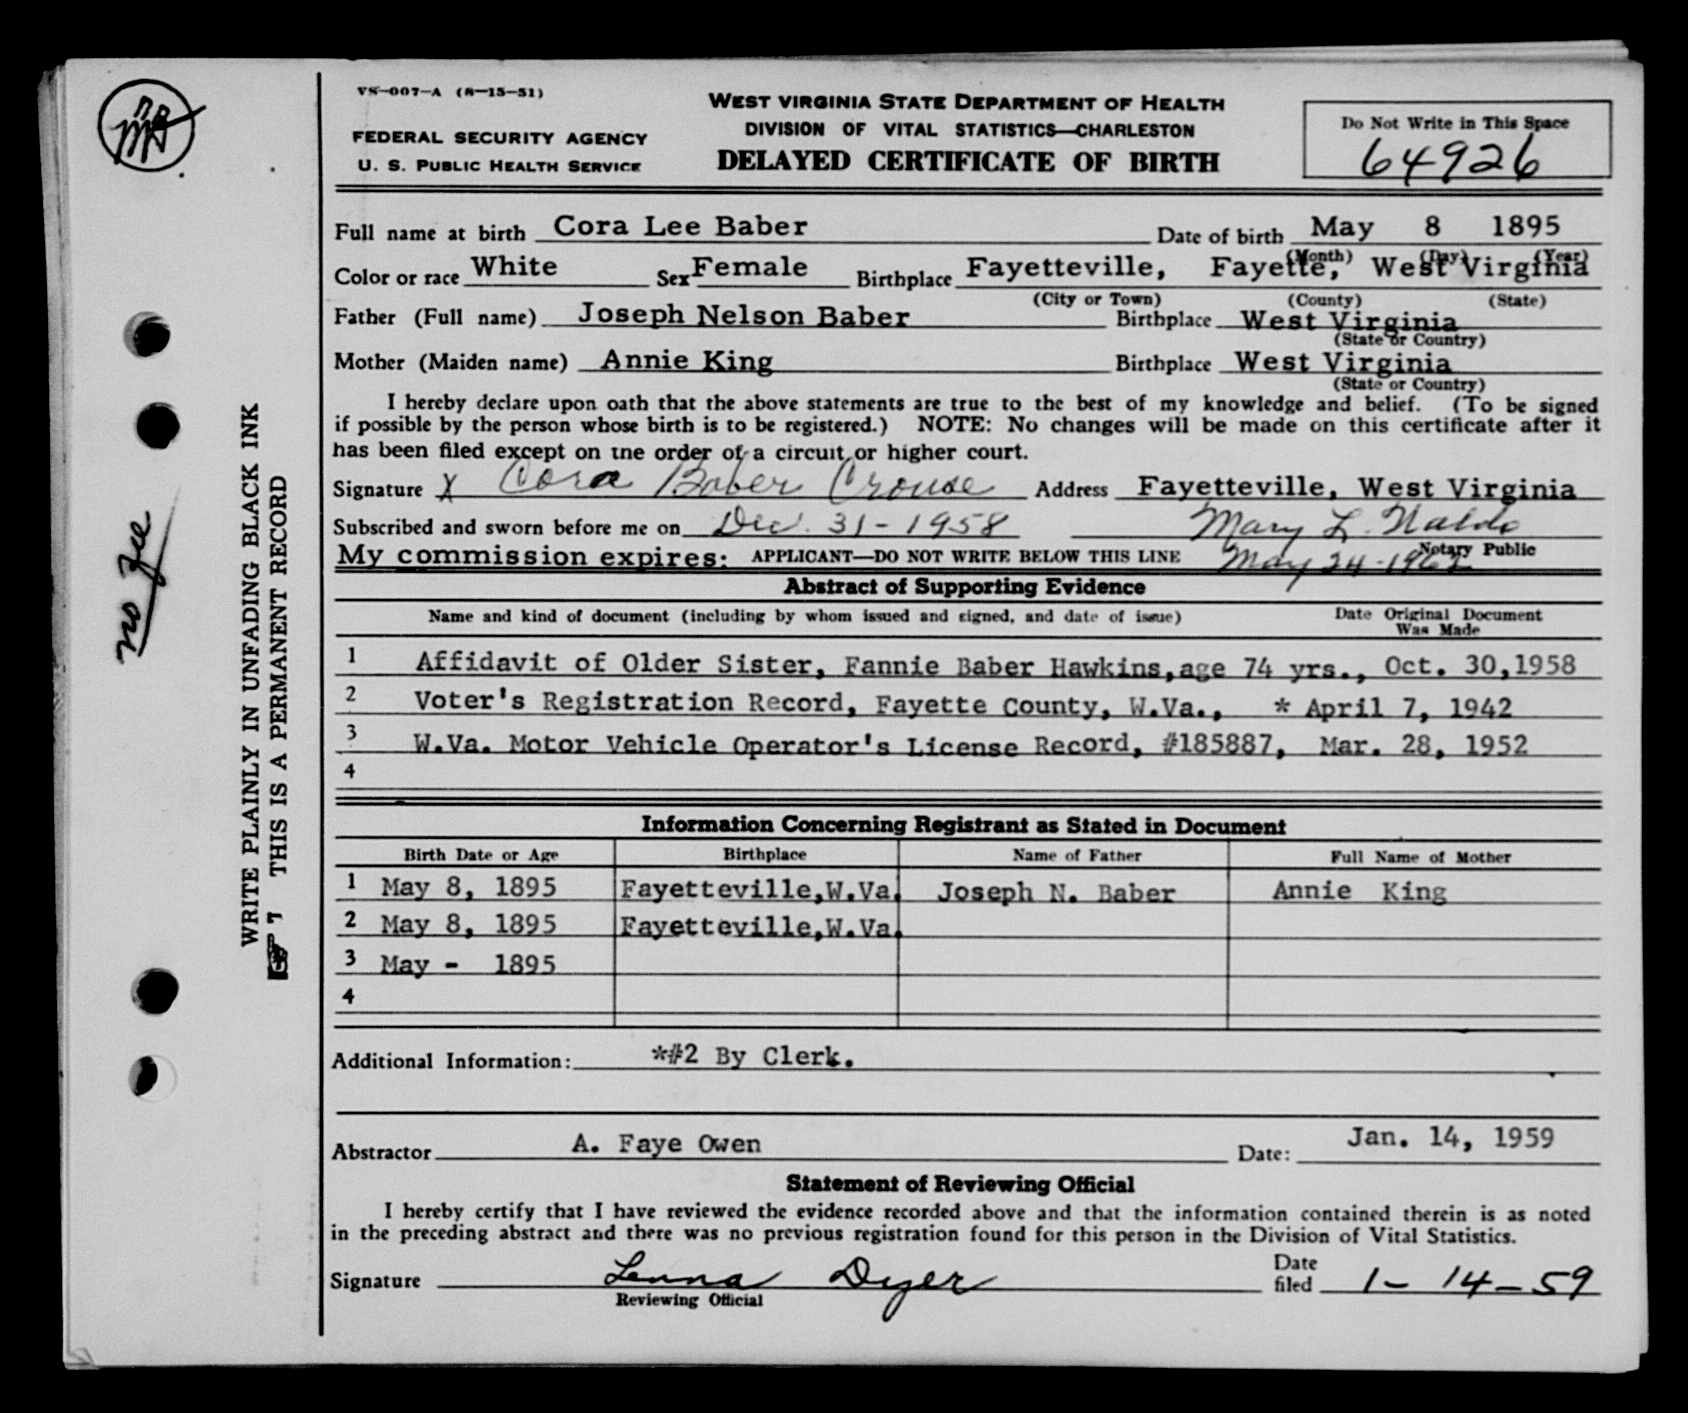 VS-007-A (8-15-51)
FEDERAL SECURITY AGENCY
U. S. PUBLIC HEALTH SERVICE
WEST VIRGINIA STATE DEPARTMENT OF HEALTH
DIVISION OF VITAL STATISTICS—CHARLESTON
DELAYED CERTIFICATE OF BIRTH
Do Not Write in This Space
64926
Full name at birth Cora Lee Baber Date of birth May 8 1895
(Month) (Day) (Year)
Color or race White Sex Female Birthplace Fayetteville, Fayette, West Virginia
(City or Town) (County) (State)
Father (Full name) Joseph Nelson Baber Birthplace West Virginia
(State or Country)
Mother (Maiden name) Annie King Birthplace West Virginia
(State or Country)
I hereby declare upon oath that the above statements are true to the best of my knowledge and belief. (To be signed
if possible by the person whose birth is to be registered.) NOTE: No changes will be made on this certificate after it
has been filed except on the order of a circuit or higher court.
Signature X Cora Baber Crouse Address Fayetteville, West Virginia
Subscribed and sworn before me on Dec. 31-1958 Mary L.
Notary Public
My commission expires: APPLICANT—DO NOT WRITE BELOW THIS LINE May 24-1962
Abstract of Supporting Evidence
Name and kind of document (including by whom issued and signed, and date of issue) Date Original Document
Was Made
1 Affidavit of Older Sister, Fannie Baber Hawkins,age 74 yrs., Oct. 30,1958
2 Voter's Registration Record, Fayette County, W.Va., * April 7, 1942
3 W.Va. Motor Vehicle Operator's License Record, #185887, Mar. 28, 1952
4
Information Concerning Registrant as Stated in Document
Birth Date or Age Birthplace Name of Father Full Name of Mother
1 May 8, 1895 Fayetteville,W.Va. Joseph N. Baber Annie King
2 May 8, 1895 Fayetteville,W.Va.
3 May - 1895
4
Additional Information: *#2 By Clerk.
Abstractor A. Faye Owen Date: Jan. 14, 1959
Statement of Reviewing Official
I hereby certify that I have reviewed the evidence recorded above and that the information contained therein is as noted
in the preceding abstract and there was no previous registration found for this person in the Division of Vital Statistics.
Signature Lenna Dyer Date
filed 1-14-59
Reviewing Official
WRITE PLAINLY IN UNFADING BLACK INK
THIS IS A PERMANENT RECORD
no Fee